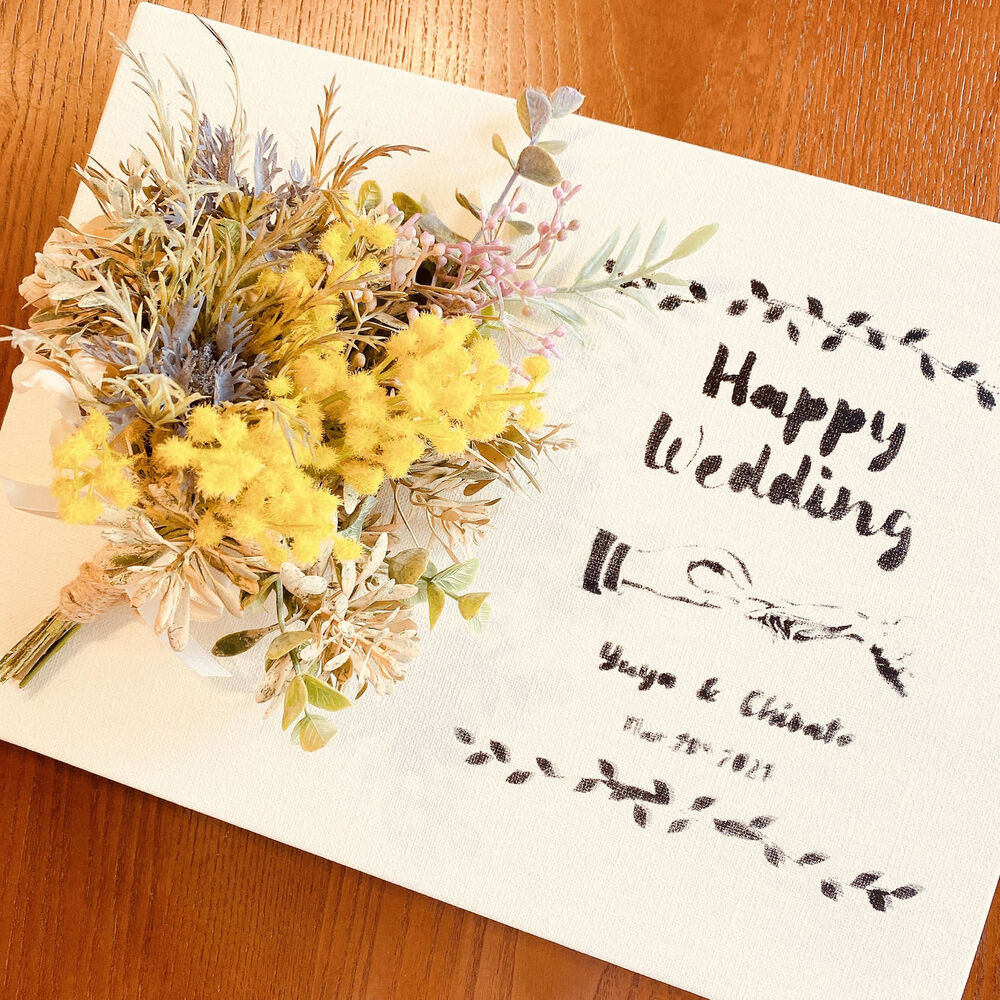 Happy
Wedding
Yuya & Chisato
Mar 2021